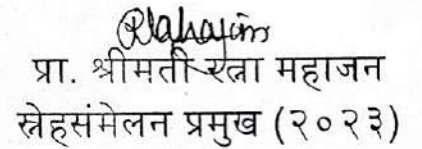 प्रा. श्रीमती रत्ना महाजन
स्नेहसंमेलन प्रमुख (२०२३)